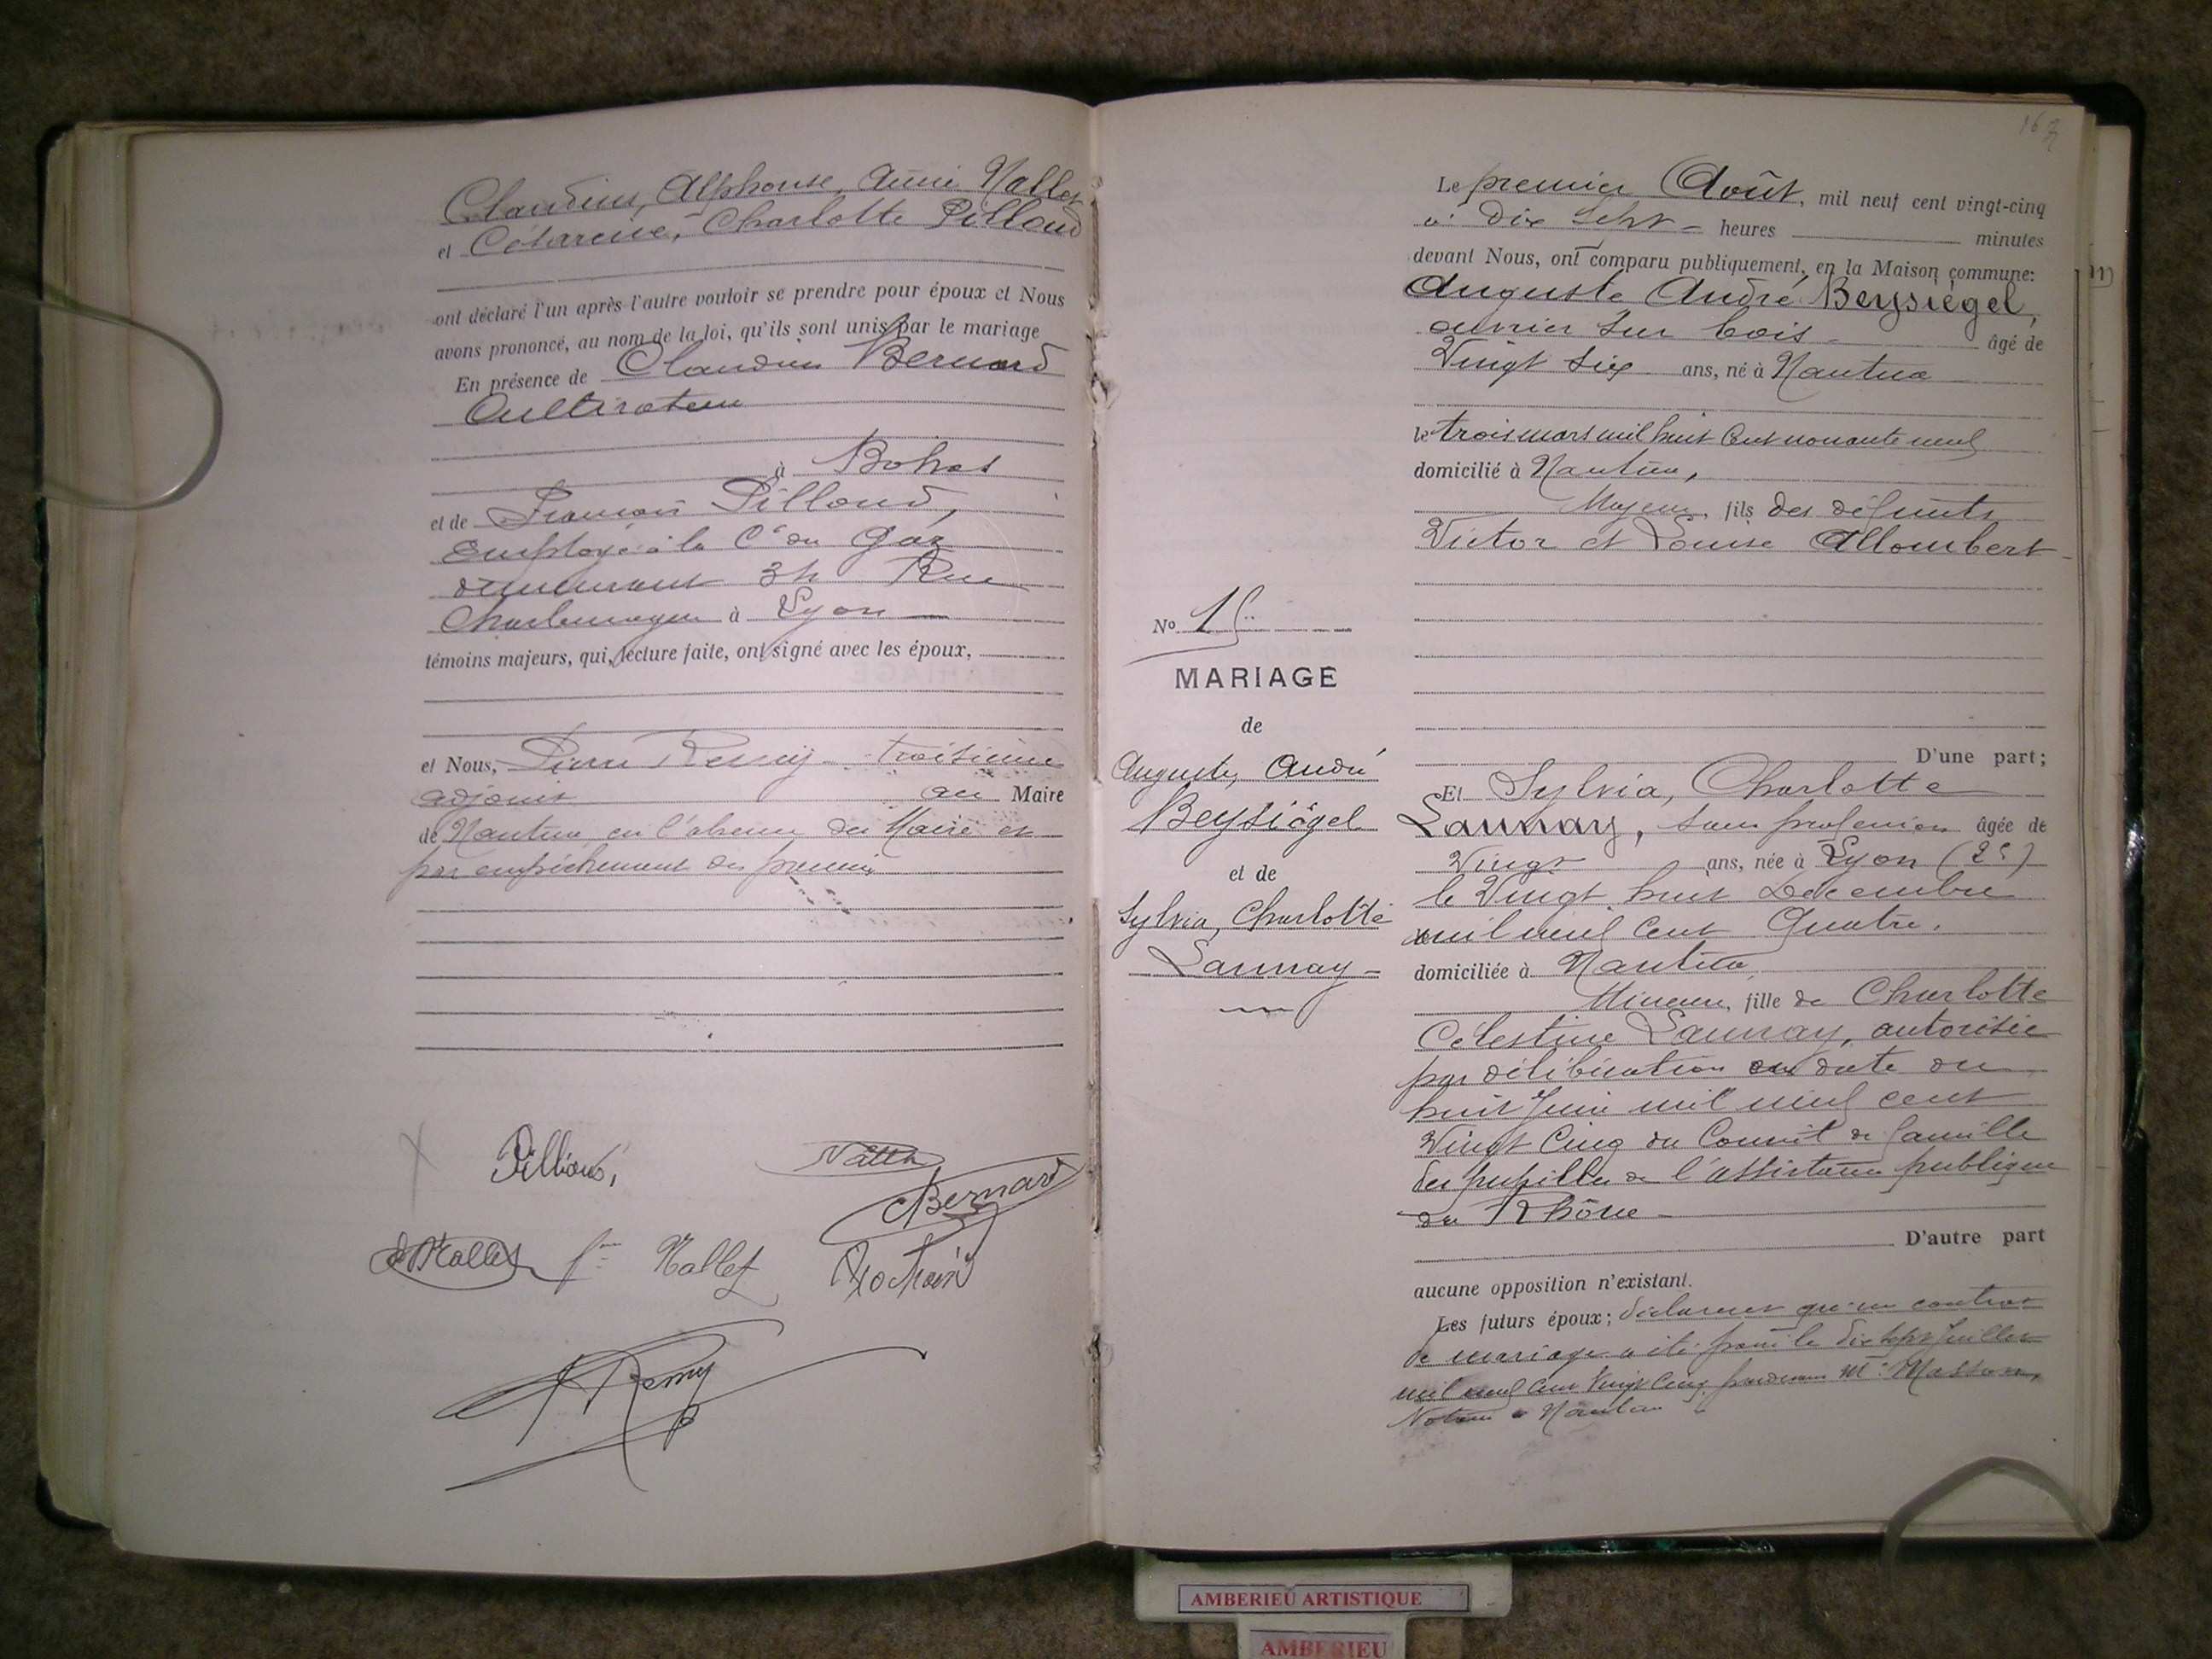 Claudius, Alphonse, Aimé Nallet
et Césarine, Charlotte Pilloud
ont déclaré l'un après l'autre vouloir se prendre pour époux et Nous
avons prononcé, au nom de la loi, qu'ils sont unis par le mariage
En présence de Claudius Bernard
Cultivateur
à Bohas
et de François Pilloud,
Employé à la Cie du Gaz
demeurant Rue
Charlemagne à Lyon
témoins majeurs, qui, lecture faite, ont signé avec les époux,
et Nous, Pierre Remy troisième
adjoint au Maire
de Nantua, en l'absence du Maire et
par empêchement du premier
Bernard
Nallet
Remy
167
Le premier Août, mil neuf cent vingt-cinq
à Dix sept heures minutes
devant Nous, ont comparu publiquement, en la Maison commune:
Auguste André Beysiégel,
ouvrier sur bois âgé de
Vingt six ans, né à Nantua
le trois mars mil huit cent nonante neuf
domicilié à Nantua,
Majeur, fils des défunts
Victor et Louise Allombert
No 15
MARIAGE
de
Auguste, André
Beysiégel
et de
Sylvia, Charlotte
Launay
D'une part;
Et Sylvia, Charlotte
Launay, sans profession âgée de
Vingt ans, née à Lyon (2e)
le Vingt huit Décembre
mil neuf cent Quatre.
domiciliée à Nantua
Mineure, fille de Charlotte
Célestine Launay, autorisée
par délibération en date du
huit Juin mil neuf cent
Vingt Cinq du Conseil de famille
des pupilles de l'assistance publique
du Rhône
D'autre part
aucune opposition n'existant.
Les futurs époux; déclarent qu'un contrat
de mariage a été passé le dix sept Juillet
mil neuf cent Vingt Cinq pardevant Me Masson,
Notaire à Nantua
AMBERIEU ARTISTIQUE
AMBERIEU